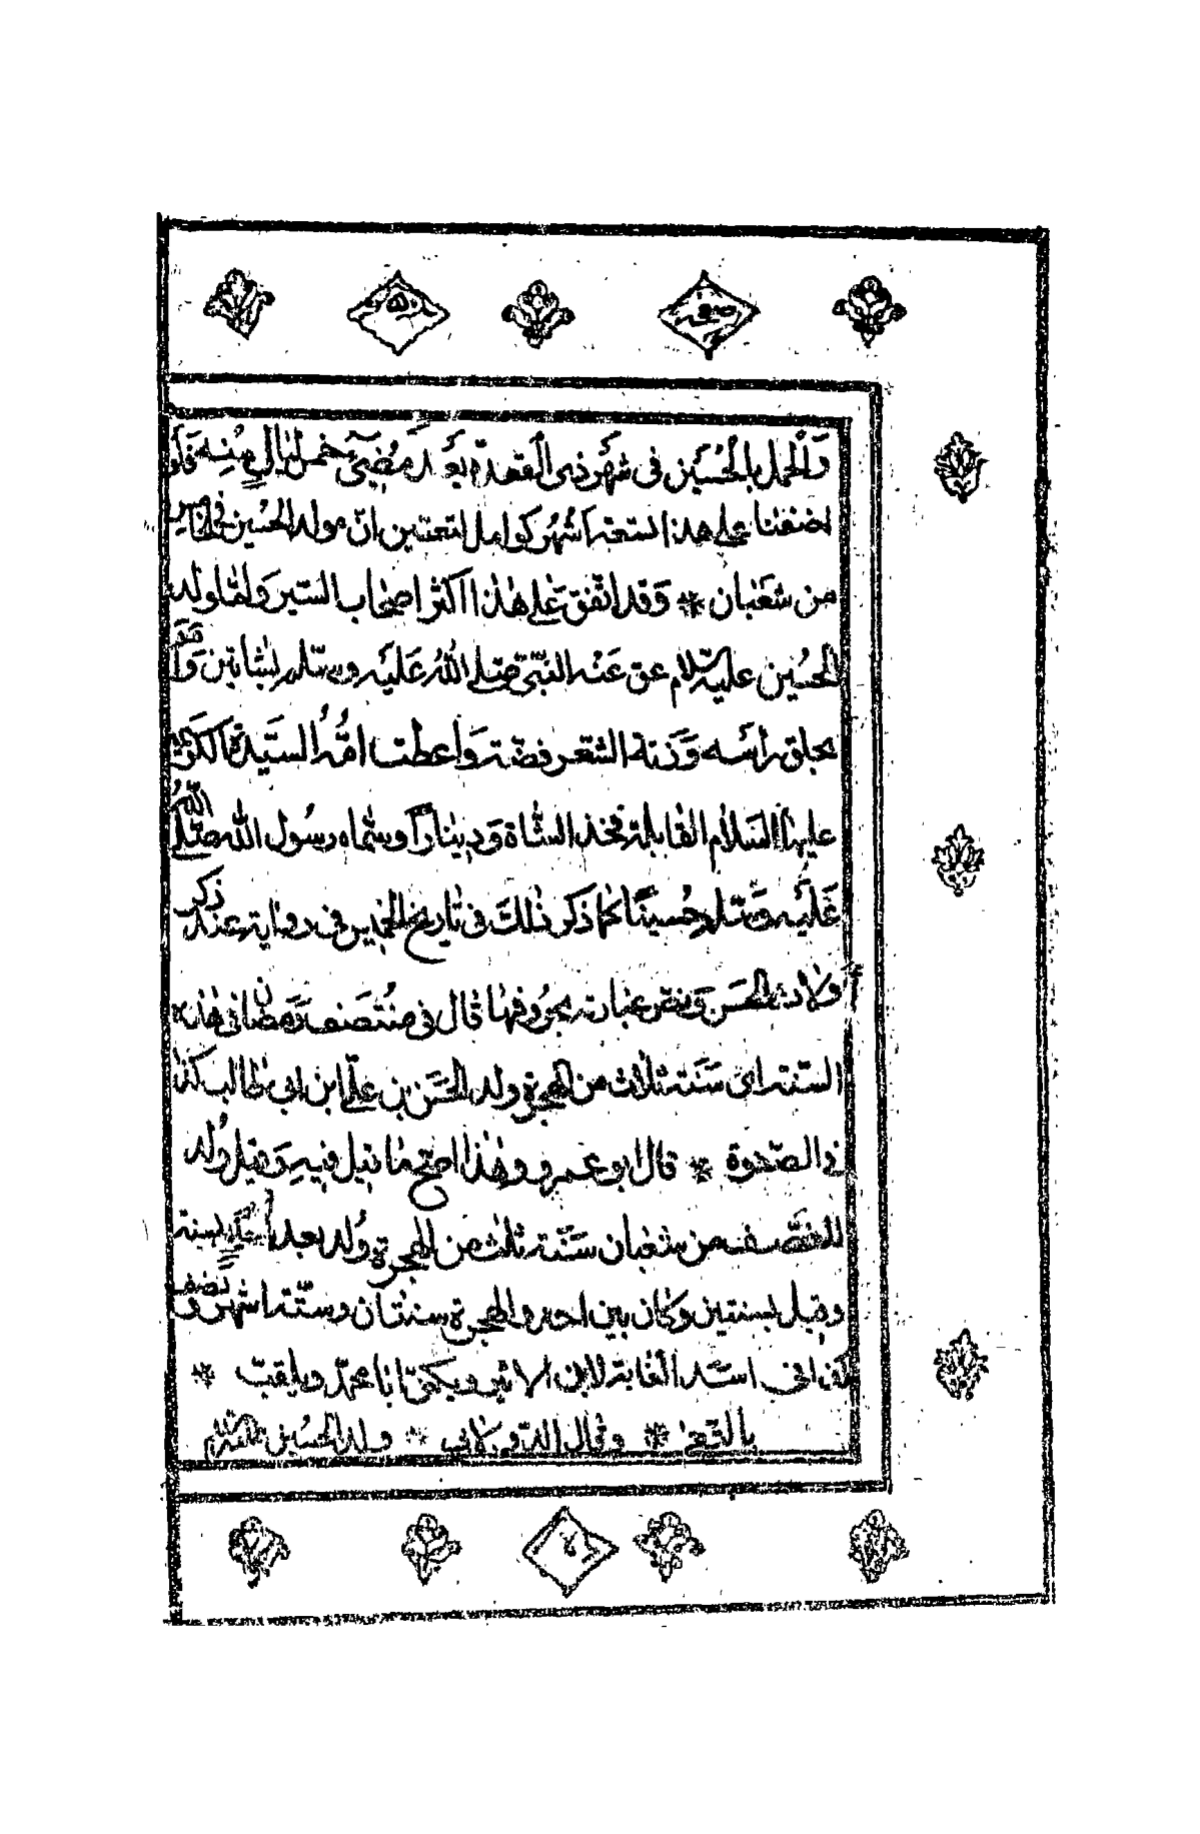 صفحہ
۵۰
وَالْحمل بالْحُسَين فى شهر ذى القعدة بَعْدَ مُضِىّ خمس ليَالٍ مِنه فَلَو
اضفنا على هذا تسعة اَشْهُر كوامل لتعيّن انّ مولد الحُسين فى خامس
من شَعْبان * وَقد اتّفق عَلى هٰذا اكثر اصْحاب السّير وَلمّا ولد
الحُسين عليه السّلام عق عَنْه النّبىّ صَلى اللهُ عَلَيْه وسّلم بشاتين وَاَمَرَ
بحلق رأسه وَزنة الشّعر فضّة وَاعطت امُّهُ السَيّدة الكُبْرىٰ
عليهَا السَّلام القابلة فخذ الشّاة وَدينارًا وسَمّاه رسُول الله صَلّى اللهُ
عَلَيْه وَسّلم حُسينًا كما ذكر ذٰلك فى تاريخ الخميس فى رواية عند ذكر
ولادة الحسَن وَنصّ عبارته بحرُوفها قال فى مُنْتصَف رَمَضان فى هٰذه
السّنة اى سَنَة ثلاث من الهجرة ولد الحَسَن بن علىّ ابن ابى طالب كذا
فى الصّفوة * قال ابو عمرو وهٰذا اصَحّ مَا قيل فيهِ وَقيل وُلد
للنّصف من شعْبان سَنة ثلٰث من الهجرة وُلد بعد اُحُدٍ بسنة
وقيل بسنتين وكان بين احد والهجرة سنتان وستّة اشهر ونصف
كذا فى اسد الغابة لابن الاثير ويكنّى ابا محمّد ويلقب *
بالتقى * وقال الدّولابى * ولد الحُسين